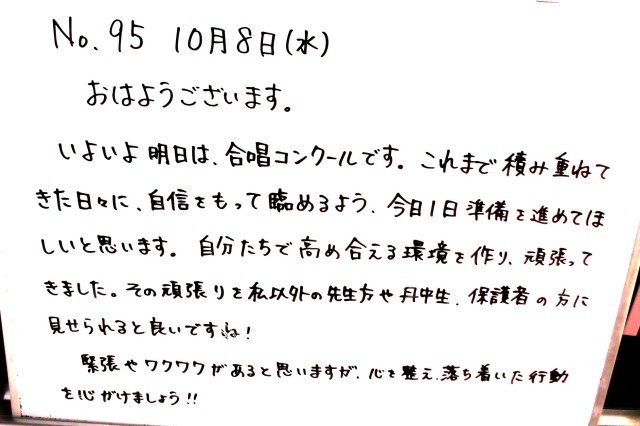 No.95 10月8日(水)
おはようございます。
いよいよ明日は、合唱コンクールです。これまで積み重ねて
きた日々に、自信をもって臨めるよう、今日1日準備を進めてほ
しいと思います。自分たちで高め合える環境を作り、頑張って
きました。その頑張りを私以外の先生方や丹中生、保護者の方に
見せられると良いですね!
緊張やワクワクがあると思いますが、心を整え、落ち着いた行動
を心がけましょう!!